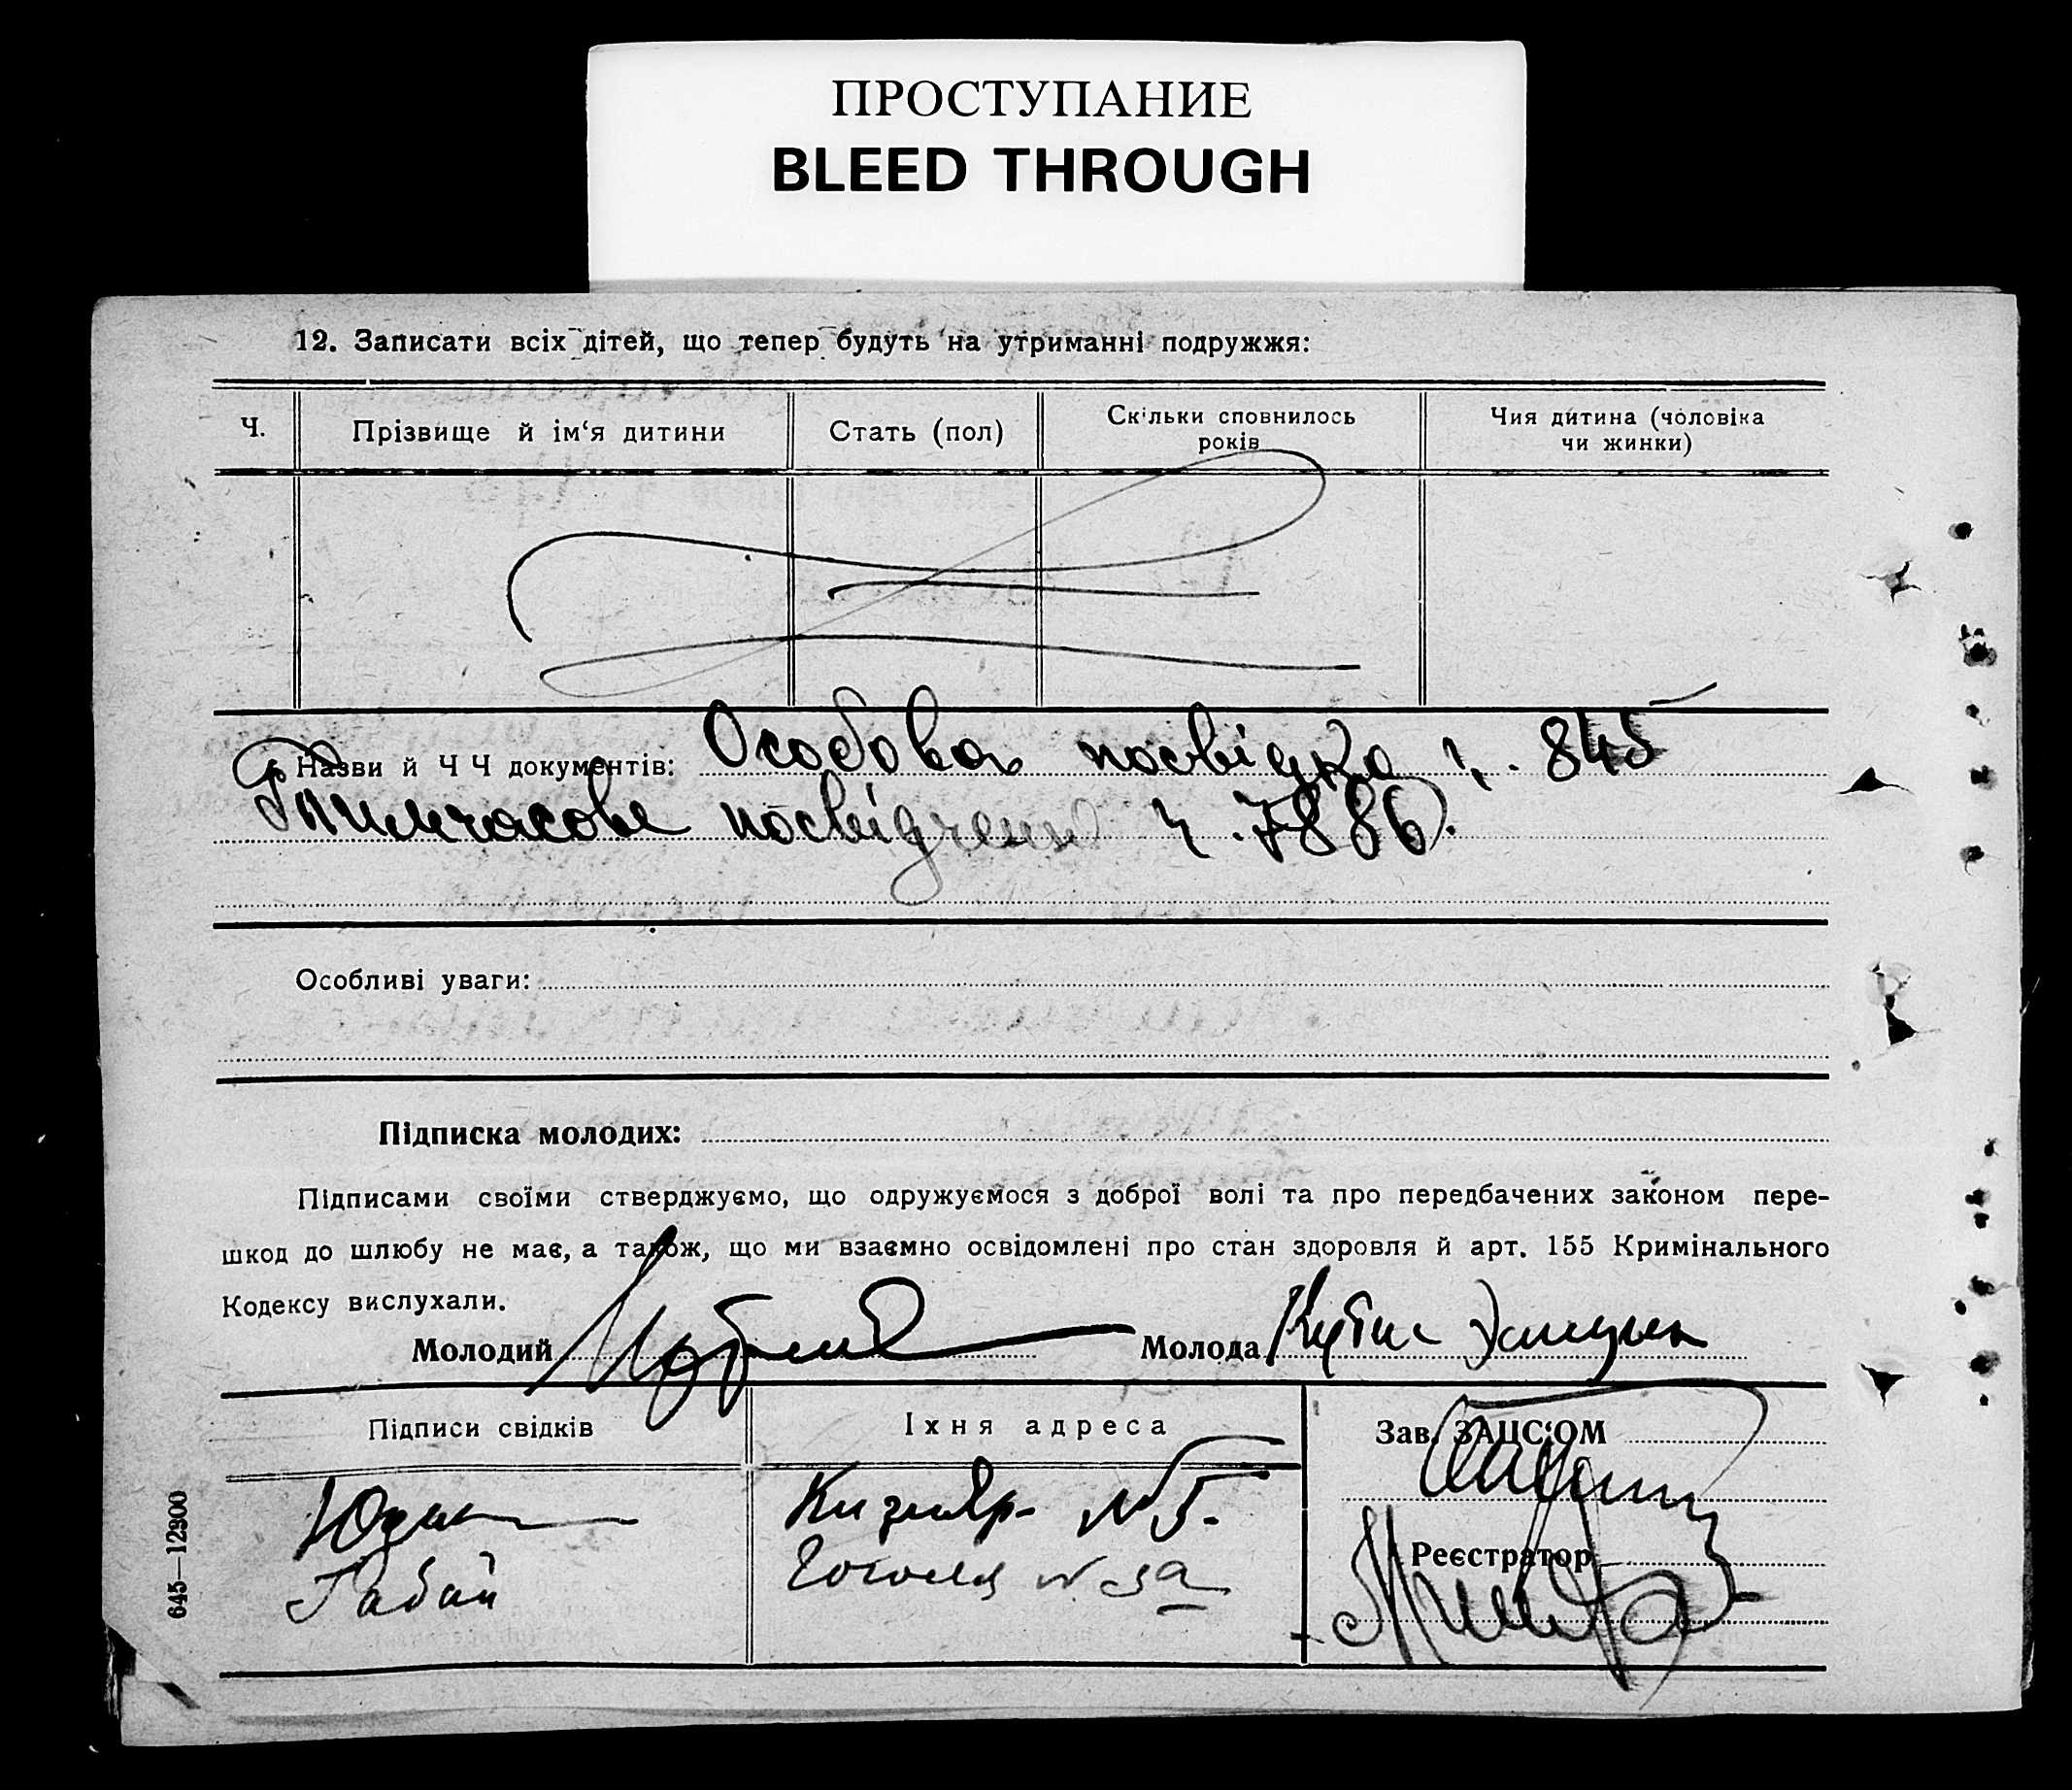 ПРОСТУПАНИЕ
BLEED THROUGH
12. Записати всіх дітей, що тепер будуть на утриманні подружжя:
Ч.
Прізвище й ім‘я дитини
Стать (пол)
Скільки сповнилось
років
Чия дитина (чоловіка
чи жинки)
Назви й Ч Ч документів: Особова посвідка ч. 845
Тимчасове посвідчення ч. 7886.
Особливі уваги:
Підписка молодих:
Підписами своїми стверджуємо, що одружуємося з доброї волі та про передбачених законом пере-
шкод до шлюбу не має, а також, що ми взаємно освідомлені про стан здоровля й арт. 155 Кримінального
Кодексу вислухали.
Молодий
Молода
Підписи свідків
Їхня адреса
Зав. ЗАЦС‘ОМ
Реєстратор
Кизияр- № 5.
Габай
Гоголя №
645—12900